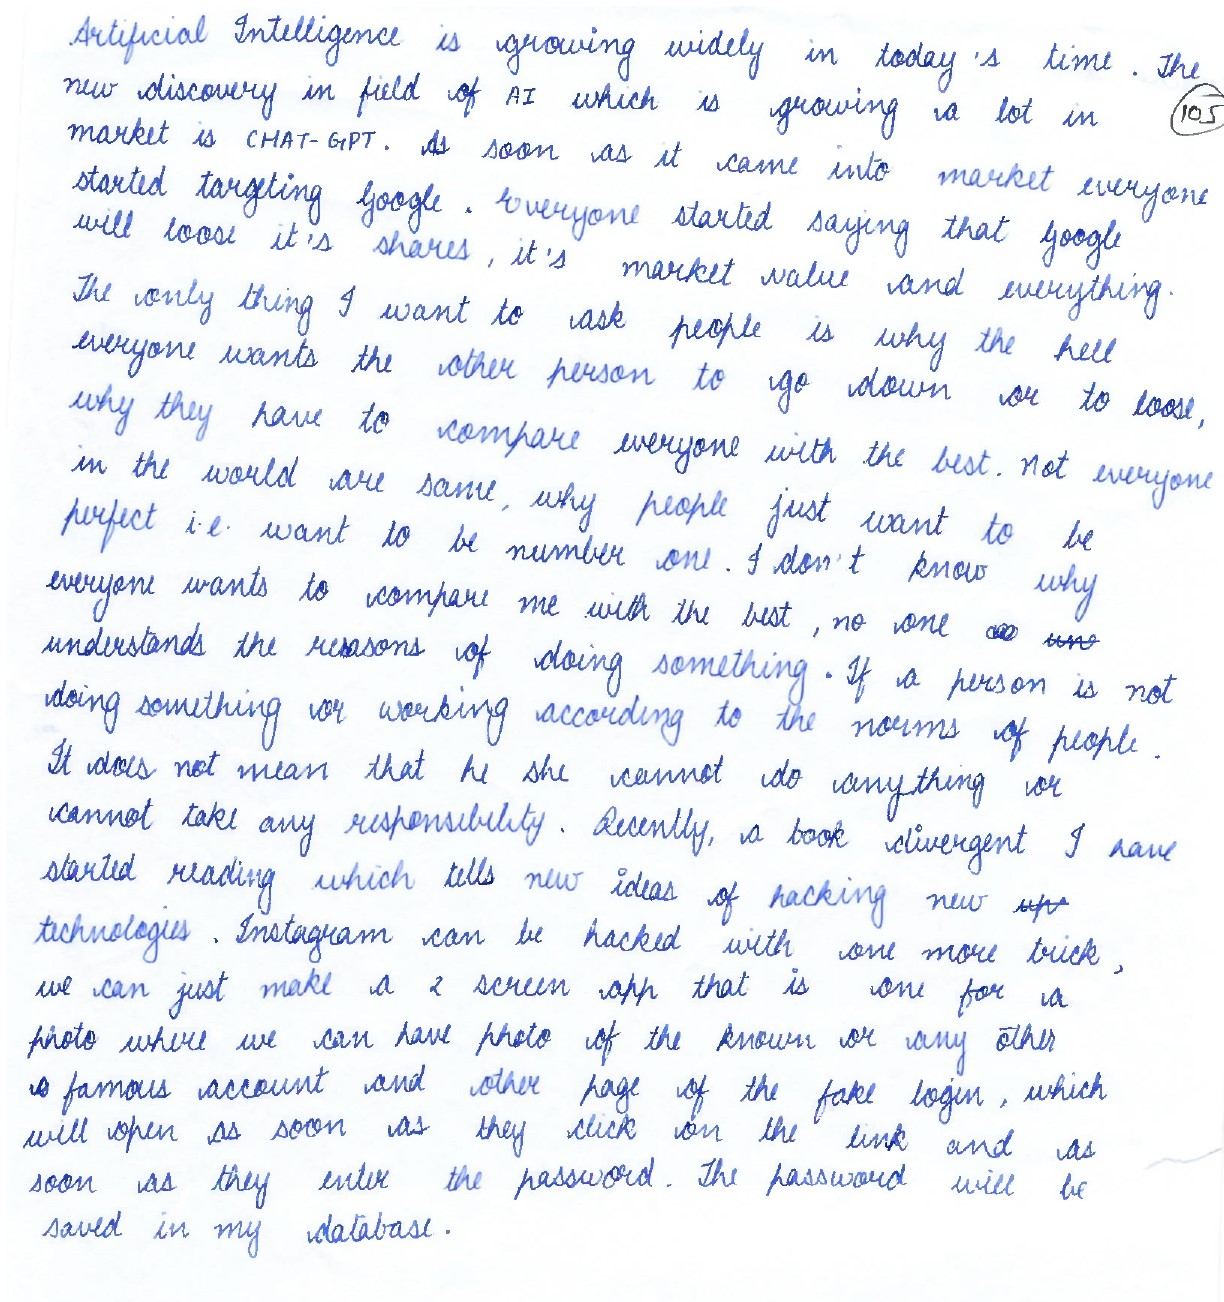 Artificial Intelligence is growing widely in today's time. The
new discovery in field of AI which is growing a lot in
105
market is CHAT-GPT. As soon as it came into market everyone
started targeting Google. Everyone started saying that Google
will loose it's shares, it's market value and everything.
The only thing I want to ask people is why the hell
everyone wants the other person to go down or to loose,
why they have to compare everyone with the best. Not everyone
in the world are same, why people just want to be
perfect i.e. want to be number one. I don't know why
everyone wants to compare me with the best, no one
understands the reasons of doing something. If a person is not
doing something or working according to the norms of people.
It does not mean that he she cannot do anything or
cannot take any responsibility. Recently, a book divergent I have
started reading which tells new ideas of hacking new
technologies. Instagram can be hacked with one more trick,
we can just make a 2 screen app that is one for a
photo where we can have photo of the known or any other
famous account and other page of the fake login, which
will open as soon as they click on the link and as
soon as they enter the password. The password will be
saved in my database.